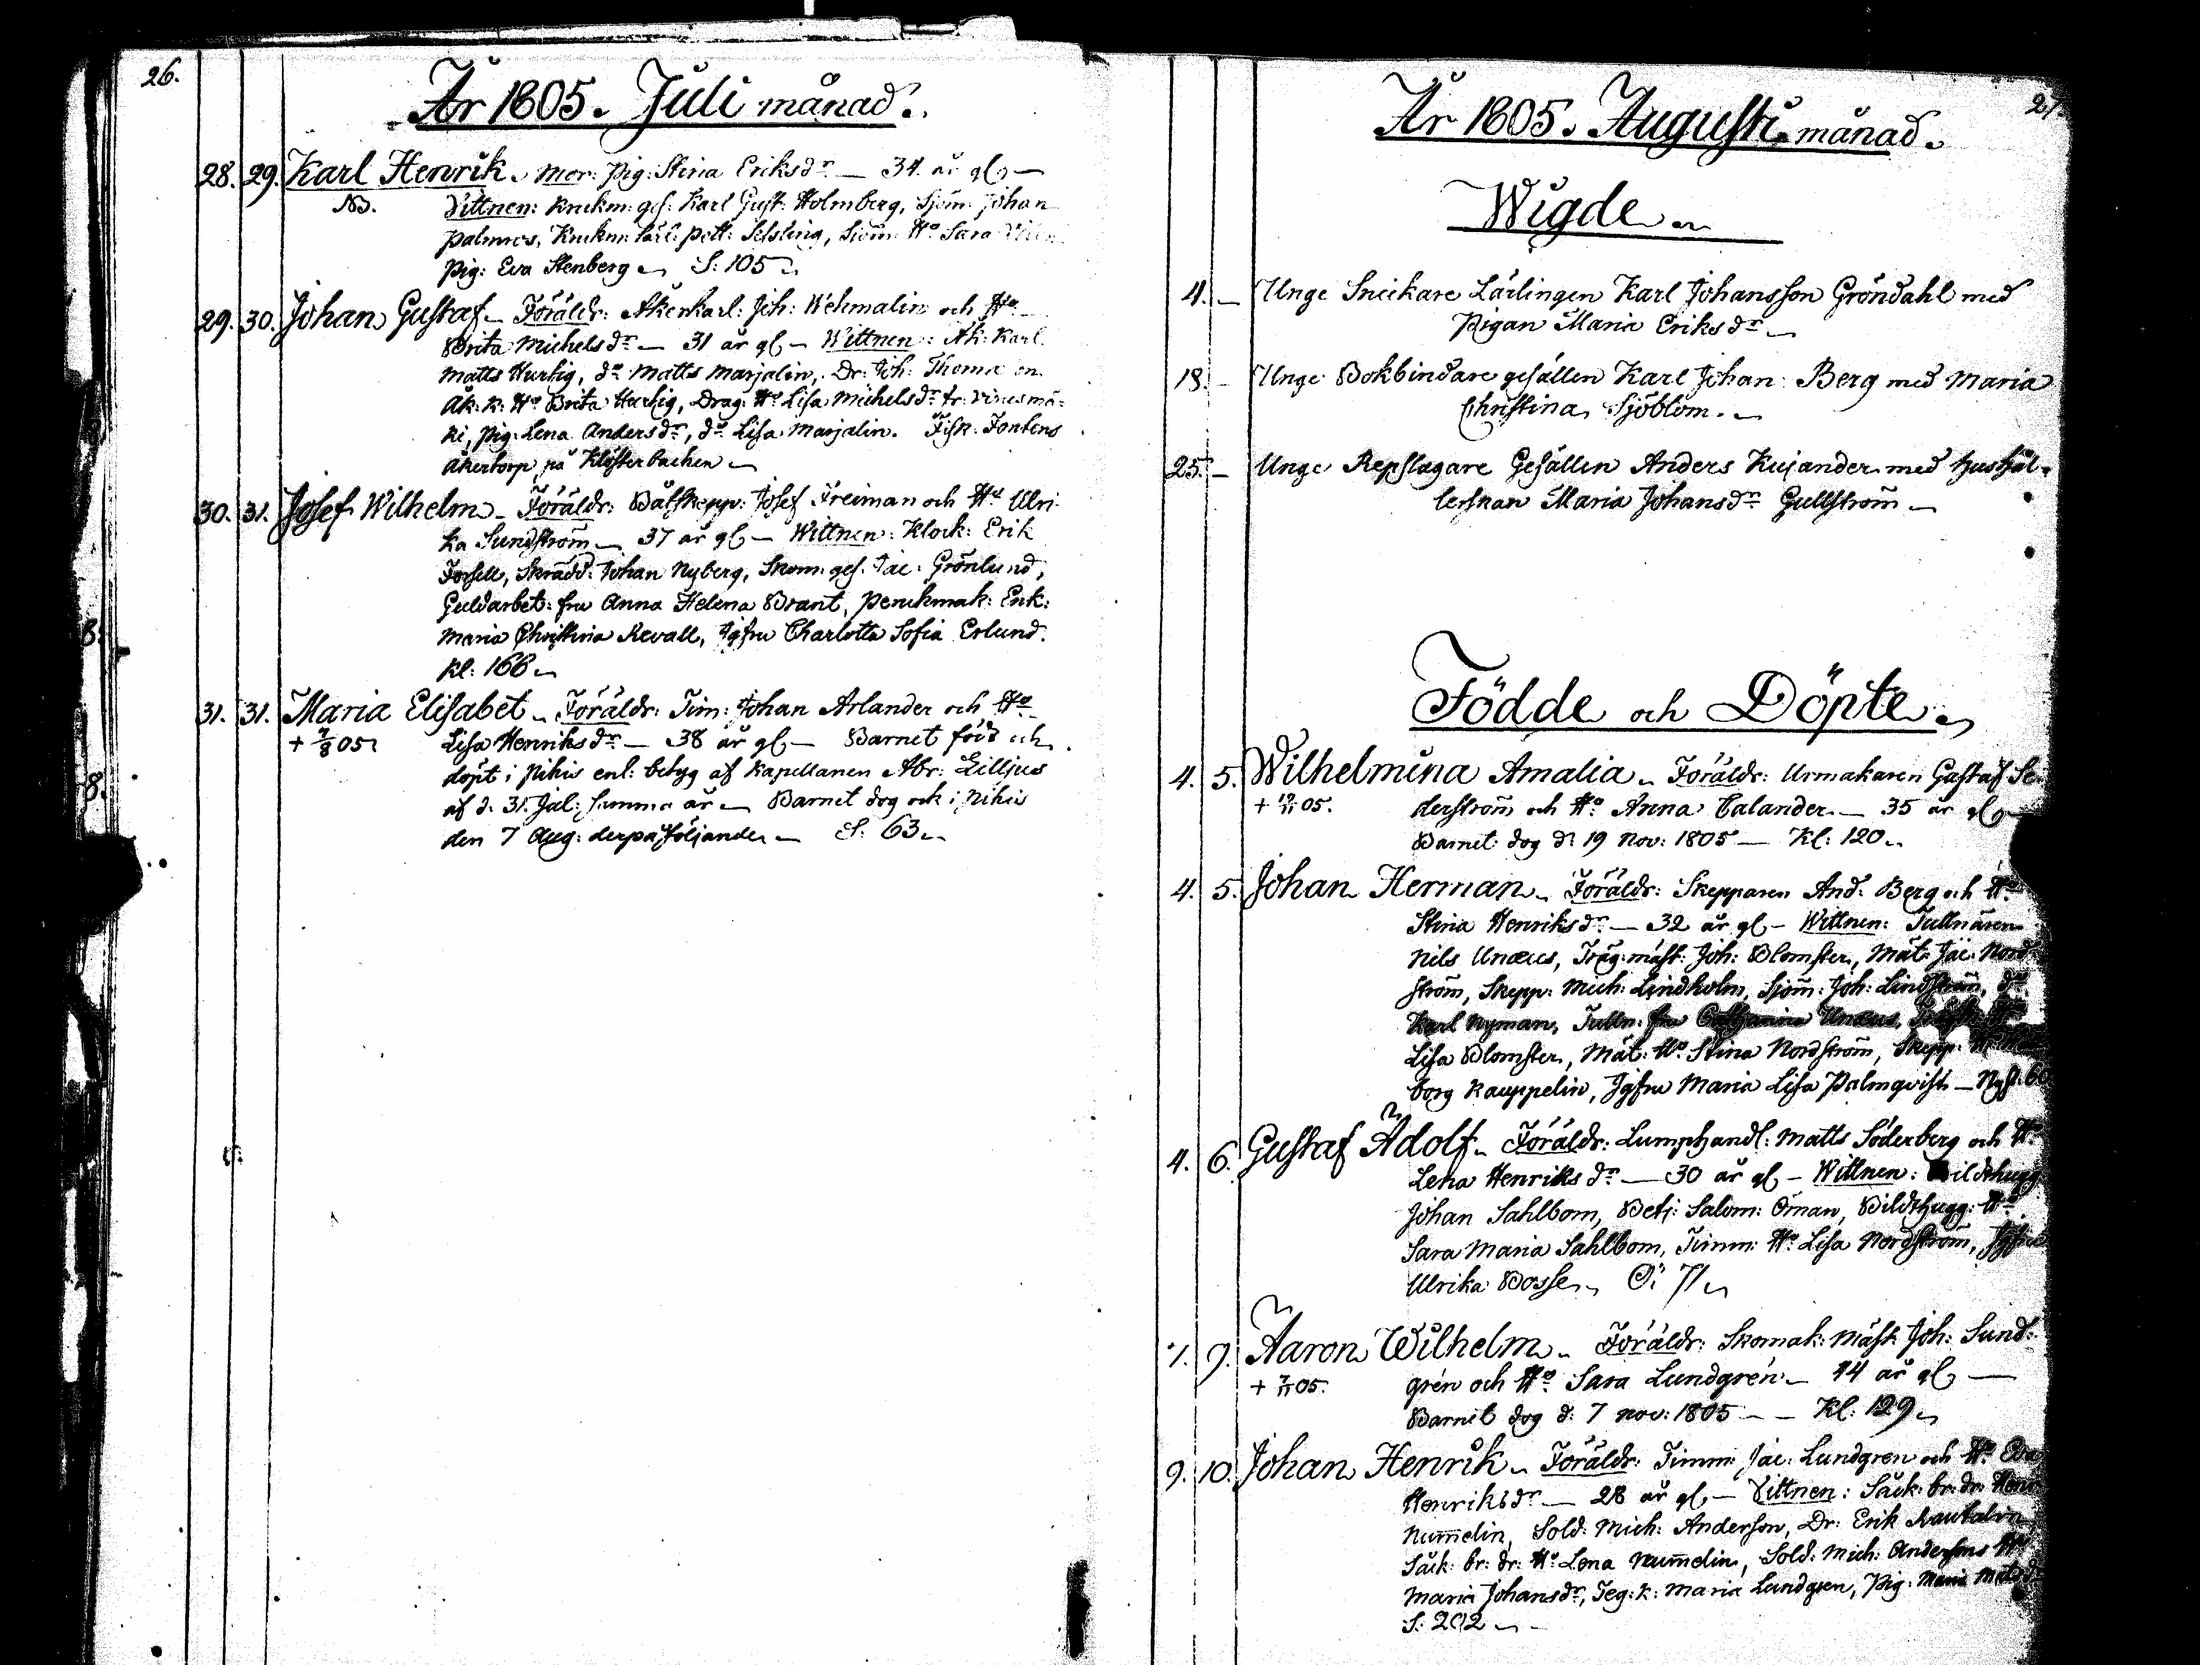 26.
År 1805. Juli månad.
28. 29. Karl Henrik. Mor: Pig: Stina Eriksdr — 34 år gl —
NB. Vittnen: Knekm: ges: Karl Gust: Holmberg, Sjöm: Johan
Palmros, Knekm: Petter Selsling, Sjöm: Ha Sara
Pig: Eva Stenberg S: 105
29. 30. Johan Gustaf. Föräldr: Åkerkarl: Joh: Wehmalin och Ha
Brita Michelsdr — 31 år gl — Wittnen: Åk: Karl.
Matts Hurtig, do Matts Marjalin, Dr: Joh: Thoma
Åk: k: Ha Brita Hurtig, Drag: Ha Lisa Michelsdr fr: Virusmä=
ki, Pig: Lena Andersdr, do Lisa Marjalin. Fisk: Fontens
åkertorp på Klösterbacken
30. 31. Josef Wilhelm. Föräldr: Båtskepp: Josef Freiman och Ha Ulri
ka Sundström — 37 år gl — Wittnen: Klock: Erik
Forsell, Skrädd: Johan Nyberg, Skom: ges: Jac: Grönlund,
Guldarbet: fru Anna Helena Brant, Perukmak: Enk:
Maria Christina Revall, Jgfru Charlotta Sofia Erlund.
Kl: 166
31. 31. Maria Elisabet. Föräldr: Tim: Johan Arlander och Ha
+ 7/8 05. Lisa Henriksdr — 38 år gl — Barnet född och
döpt i Pikis enl: betyg af Kapellanen Abr: Lilljus
af d. 31. Jul: samma år — Barnet dog ock i Pikis
den 7 Aug: derpåföljande — S: 63
27.
År 1805. Augusti månad.
Wigde
4. — Unge Snickare Lärlingen Karl Johansson Gröndahl med
Pigan Maria Eriksdr —
18. — Unge Bokbindare gesällen Karl Johan Berg med Maria
Christina Sjöblom. —
25. — Unge Repslagare Gesällen Anders Kujander med hushål=
lerskan Maria Johansdr Gullström —
Födde och Döpte
4. 5. Wilhelmina Amalia. Föräldr: Urmakaren Gustaf Se
+ 19/11 05. derström och Ha Anna Calander — 35 år gl
Barnet dog d: 19 Nov: 1805 — Kl: 120
4. 5. Johan Herman. Föräldr: Skepparen And: Berg och Ha
Stina Henriksdr — 32 år gl — Wittnen: Tullnären
Nils Unæus, Träg: mäst: Joh: Blomster, Mät: Jac: Nord
ström, Skepp: Mich: Lindholm, Sjöm: Joh: Lindström, do
Karl Nyman, Tulln: fru Catharina Unæus,
Lisa Blomster, Mät: Ha Stina Nordström, Skepp:
borg Kauppelin, Jgfru Maria Lisa Palmqvist — Nyst: 60
4. 6. Gustaf Adolf. Föräldr: Lumphandl: Matts Söderberg och Ha
Lena Henriksdr — 30 år gl — Wittnen: Bildthugg
Johan Sahlbom, Betj: Salom: Öman, Bildthugg: Ha
Sara Maria Sahlbom, Timm: Ha Lisa Nordström, Jgfru
Ulrika Bosse. Ö: 71
7. 9. Aaron Wilhelm. Föräldr: Skomak: Mäst: Joh: Sund=
+ 7/11 05. grén och Ha Sara Lundgrén — 44 år gl —
Barnet dog d: 7 Nov: 1805 — Kl: 129
9. 10. Johan Henrik. Föräldr: Timm: Jac: Lundgren och Ha Eva
Henriksdr — 28 år gl — Vittnen: Säck: br: dr: Henr
Nummelin, Sold: Mich: Anderson, Dr: Erik Rautalin
Säck: br: dr: Ha Lena Nummelin, Sold: Mich: Andersons Ha
Maria Johansdr, Teg: k: Maria Lundgren, Pig: Maria Matsdr
S: 202